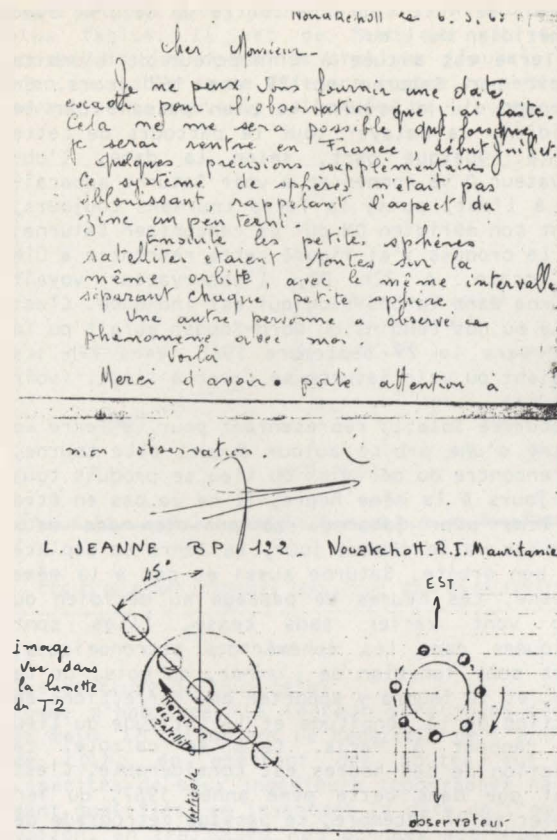 Nouakchott le 6.3.65
Cher Monsieur-
Je ne peux vous fournir une date
exacte pour l'observation que j'ai faite.
Cela ne me sera possible que lorsque
je serai rentré en France début juillet.
quelques précisions supplémentaires
Ce système de sphères n'était pas
éblouissant, rappelant l'aspect du
zinc un peu terni.
Ensuite les petites sphères
satellites étaient toutes sur la
même orbite, avec le même intervalle
séparant chaque petite sphère
Une autre personne a observé ce
phénomène avec moi.
Voilà
Merci d'avoir porté attention à
mon observation
L. JEANNE BP 122. Nouakchott. R.I. Mauritanie
45°
image
vue dans
la lunette
du T2
rotation
des satellites
Verticale
EST
observateur